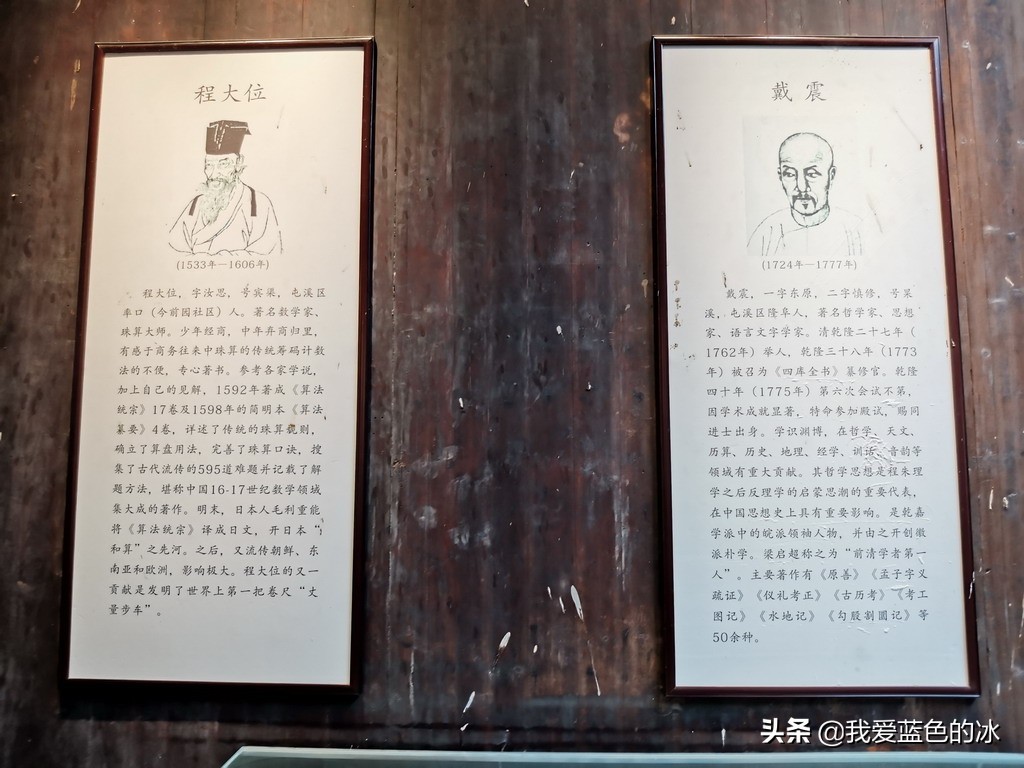 程大位
(1533年—1606年)
程大位，字汝思，号宾渠，屯溪区
率口（今前园社区）人。著名数学家、
珠算大师。少年经商，中年弃商归里，
有感于商务往来中珠算的传统筹码计数
法的不便，专心著书。参考各家学说，
加上自己的见解，1592年著成《算法
统宗》17卷及1598年的简明本《算法
纂要》4卷，详述了传统的珠算规则，
确立了算盘用法，完善了珠算口诀，搜
集了古代流传的595道难题并记载了解
题方法，堪称中国16-17世纪数学领域
集大成的著作。明末，日本人毛利重能
将《算法统宗》译成日文，开日本“
和算”之先河。之后，又流传朝鲜、东
南亚和欧洲，影响极大。程大位的又一
贡献是发明了世界上第一把卷尺“丈
量步车”。
戴震
(1724年—1777年)
戴震，一字东原，二字慎修，号杲
溪，屯溪区隆阜人，著名哲学家、思想
家、语言文字学家。清乾隆二十七年（
1762年）举人，乾隆三十八年（1773
年）被召为《四库全书》纂修官。乾隆
四十年（1775年）第六次会试不第，
因学术成就显著，特命参加殿试，赐同
进士出身。学识渊博，在哲学、天文、
历算、历史、地理、经学、训诂、音韵等
领域有重大贡献。其哲学思想是程朱理
学之后反理学的启蒙思潮的重要代表，
在中国思想史上具有重要影响。是乾嘉
学派中的皖派领袖人物，并由之开创徽
派朴学。梁启超称之为“前清学者第一
人”。主要著作有《原善》《孟子字义
疏证》《仪礼考正》《古历考》《考工
图记》《水地记》《勾股割圆记》等
50余种。
头条 @我爱蓝色的冰